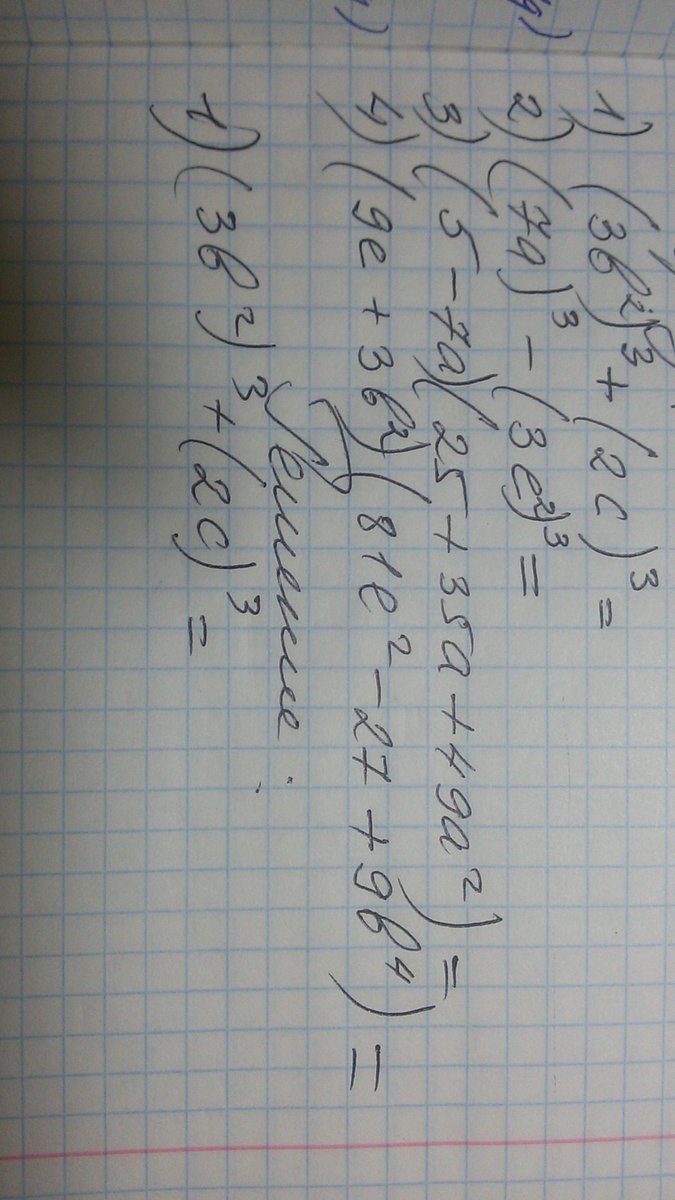 1) (3b²)³ + (2c)³ =
2) (7a)³ - (3c²)³ =
3) (5 - 7a)(25 + 35a + 49a²) =
4) (9c + 3b²)(81c² - 27 + 9b⁴) =
Решение:
1) (3b²)³ + (2c)³ =